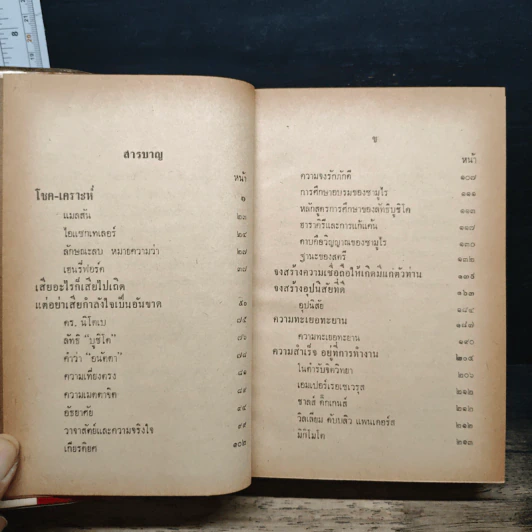 สารบาญ
หน้า
โชค-เคราะห์ ๑
แมลสัน ๒๓
ไอแซกเทเลอร์ ๒๔
ลักษณะลบ หมายความว่า ๒๗
เฮนรี่ฟอร์ด ๓๘
เสียอะไรก็เสียไปเถิด
แต่อย่าเสียกำลังใจเป็นอันขาด ๕๑
ดร. นิโตเบ ๗๕
ลัทธิ "บูชิโด" ๗๖
คำว่า "อนัตตา" ๗๘
ความเที่ยงตรง ๘๑
ความเมตตาจิต ๘๙
อัธยาศัย ๙๔
วาจาสัตย์และความจริงใจ ๙๙
เกียรติยศ ๑๐๒
ข
หน้า
ความจงรักภักดี ๑๐๗
การศึกษาอบรมของซามูไร ๑๑๑
หลักสูตรการศึกษาของลัทธิบูชิโด ๑๑๓
ฮาราคีรีและการแก้แค้น ๑๑๗
ดาบคือวิญญาณของซามูไร ๑๓๐
ฐานะของสตรี ๑๓๒
จงสร้างความเชื่อถือให้เกิดมีแก่ตัวท่าน ๑๓๕
จงสร้างอุปนิสัยที่ดี ๑๖๓
อุปนิสัย ๑๘๔
ความทะเยอทะยาน ๑๘๗
ความทะเยอทะยาน ๑๙๐
ความสำเร็จ อยู่ที่การทำงาน ๒๐๔
ในตำรับจิตวิทยา ๒๐๖
เอมเปอร์เรอเซเวรุส ๒๑๒
ชาลส์ ดิ๊กเกนส์ ๒๑๒
วิลเลียม ดับบลิว แพนเคอร์ส ๒๑๒
มิกิโมโต ๒๑๓